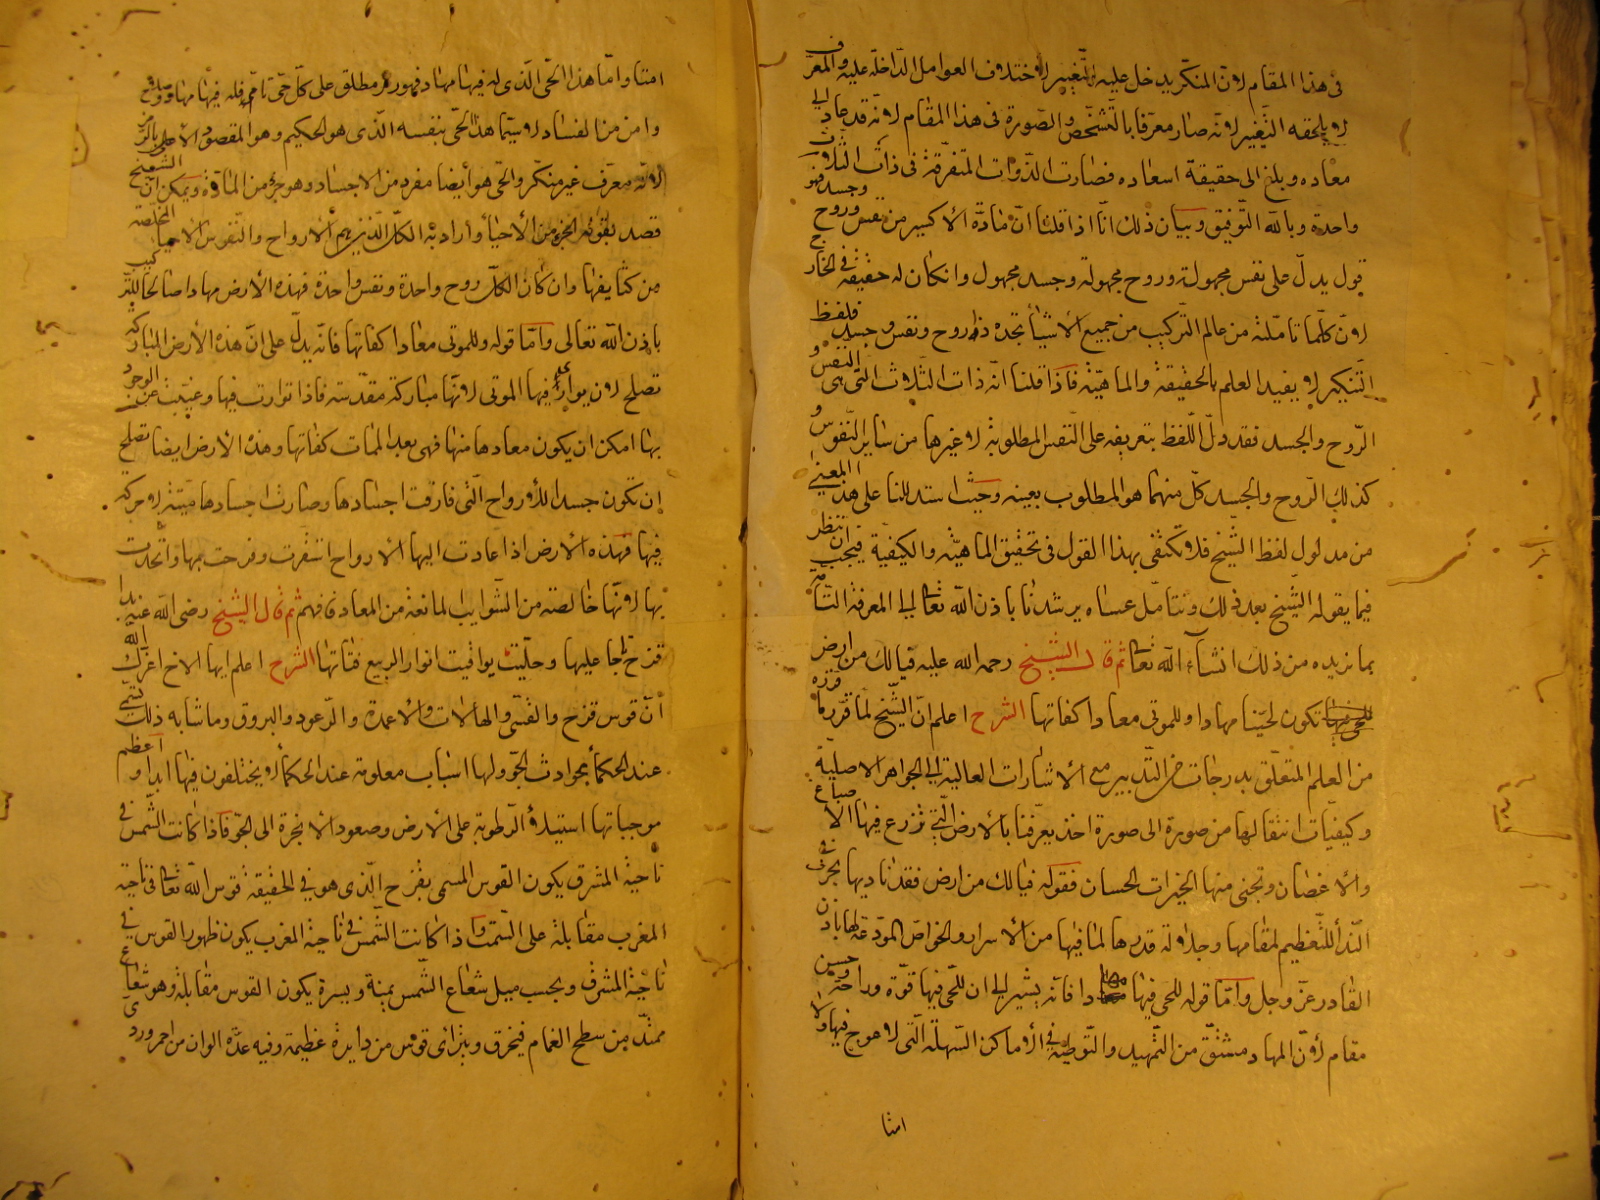 فى هذا المقام لانّ المنكّر يدخل عليه التّغيير لاختلاف العوامل الدّاخلة عليه والمعرّف
لا يلحقه التّغيير لانّه صار معرّفا بالتّشخّص والصّورة فى هذا المقام لانّه قد عاد الى
معاده وبلغ الى حقيقة اسعاده فصارت الذّوات المتفرّقة فى ذات الثّلاث
واحدة وبالله التّوفيق وبيان ذلك انّا اذا قلنا انّ مادّة الأكسير من نفس وروح وجسد فهو
قول يدلّ على نفس مجهولة وروح مجهولة وجسد مجهول وان كان له حقيقة فى الخارج
لانّ كلّما تامّلته من عالم التّركيب من جميع الأشيأ تجده ذا روح ونفس وجسد فلفظ
التّنكير لا يفيد العلم بالحقيقة والماهيّة فاذا قلنا انّه ذات الثّلاث التى هى النّفس و
الرّوح والجسد فقد دلّ اللّفظ بتعريفه على النّفس المطلوبة لا غيرها من ساير النّفوس و
كذلك الرّوح والجسد كلّ منهما هو المطلوب بعينه وحيث استدللنا على هذا المعنى
من مدلول لفظ الشّيخ فلا نكتفى بهذا القول فى تحقيق الماهيّة والكيفية فيجب ان ننظر
فيما يقوله الشّيخ بعد ذلك ونتامّل عساه يرشدنا باذن الله تعالى الى المعرفة التّامّة
بما نريده من ذلك انشآء الله تعالى ثم قال الشيخ رحمه الله عليه فيالك من ارض
تكون لحيّنا مهادا وللموتى معادا كفاتها الشرح اعلم انّ الشّيخ لمّا قرّر ما قرّره
من العلم المتعلّق بدرجات التّدبير مع الأشارات العالية الى الجواهر الاصليّة
وكيفيّات انتقالها من صورة الى صورة اخذ يعرّفنا بالأرض الّتى تزرع فيها الاصباغ
والأغصان وتجنى منها الخيرات الحسان فقوله فيالك من ارض فقد ناديها بحرف فى
النّدأ للتّعظيم لمقامها وجلالة قدرها لما فيها من الأسرار والخواصّ المودّعة لها باذن
القادر عزّ وجل وامّا قوله للحى فيها مهادا فانّه يشير الى ان للحّى فيها قوّة وراحة وحسن
مقام لانّ المهاد مشتقّ من التّمهيد والتّوطية فى الأماكن السّهلة الّتى لا عوج فيها ولا
امتا
امتا وامّا هذا الحّى الّذى له فيها مهاد فهو رمز مطلق على كلّ حّى تامّ فله فيها مهاد و
وامن من الفساد لا سيّما هذا الحّى بنفسه الّذى هو الحكيم وهو المقصود الأعلى بالرّمز
لأنّه معرّف غير منكّر والحّى هو أيضا مفرد من الاجساد وهو جزء من المادّة ويمكن انّ الشّيخ
قصد بقوله الجزء من الأحيأ وأراد به الكلّ الّذين هم الأرواح والنّفوس الاحيا المخلّصة
من كثايفها وان كان الكلّ روح واحدة ونفس واحدة فهذه الأرض مهادا صالحا للتّركيب
باذن الله تعالى وامّا قوله وللموتى معادا كفاتها فانّه يدلّ على انّ هذه الأرض المباركة
تصلح لان يوارى فيها الموتى لانّها مباركة مقدّسة فاذا توارت فيها وغيّبت عن الوجود
بها امكن ان يكون معادها منها فهى بعد الممات كفاتها وهذه الأرض ايضا تصلح
ان تكون جسدا للأرواح الّتى فارقت اجسادها وصارت اجسادها ميّتة لا حركة
فيها فهذه الأرض اذا عادت اليها الأرواح استقرت وفرحت بها واتّحدت
بها لانّها خالصة من الشّوايب المانعة من المعاد فافهم ثم قال الشيخ رضى الله عنه
قزح تاجا عليها وحلّيت يواقيت انوار الربيع فتاتها الشرح اعلم ايها الاخ اعزّك الله
انّ قوس قزح والقسّى والهالات والأعمدة والرّعود والبروق وما شابه ذلك
عند الحكمأ بحوادث الجوّ ولها اسباب معلومة عند الحكمأ لا يختلفون فيها ابدا و اعظم
موجباتها استيلاؤ الرّطوبة على الأرض وصعود الأبخرة الى الجوّ فاذا كانت الشّمس فى
ناحية المشرق يكون القوس المسمى بقزح الّذى هو فى الحقيقة قوس الله تعالى فى ناحية
المغرب مقابلة على السّمت واذا كانت الشّمس فى ناحية المغرب يكون ظهور القوس فى
ناحية المشرق وبحسب ميل شعاع الشّمس يمنة ويسرة يكون القوس مقابلة وهو شعاع
ممتدّ من سطح الغمام فيخرق ويترائى قوس من دايرة عظيمة وفيه عدّة الوان من احمر وردىّ